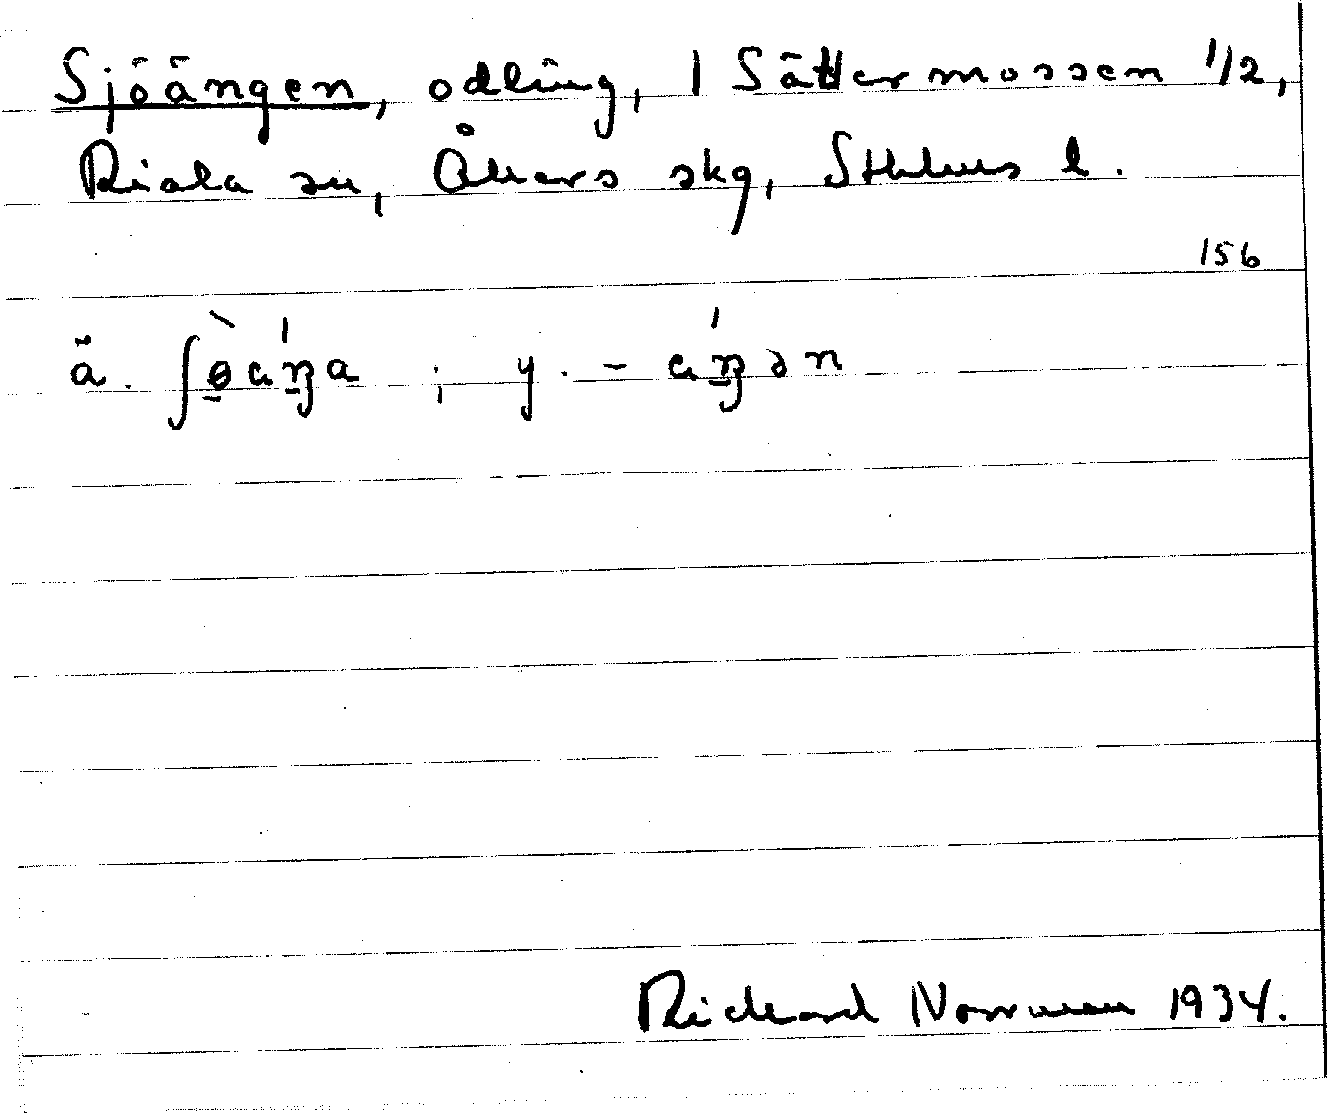 Sjöängen, odling, 1 Sättermossen 1/2,
Riala sn, Åkers skg, Sthlms l.
156
ä. ʃɵ̀aŋ́a ; y. - aŋ́ən
Rickard Norrman 1934.